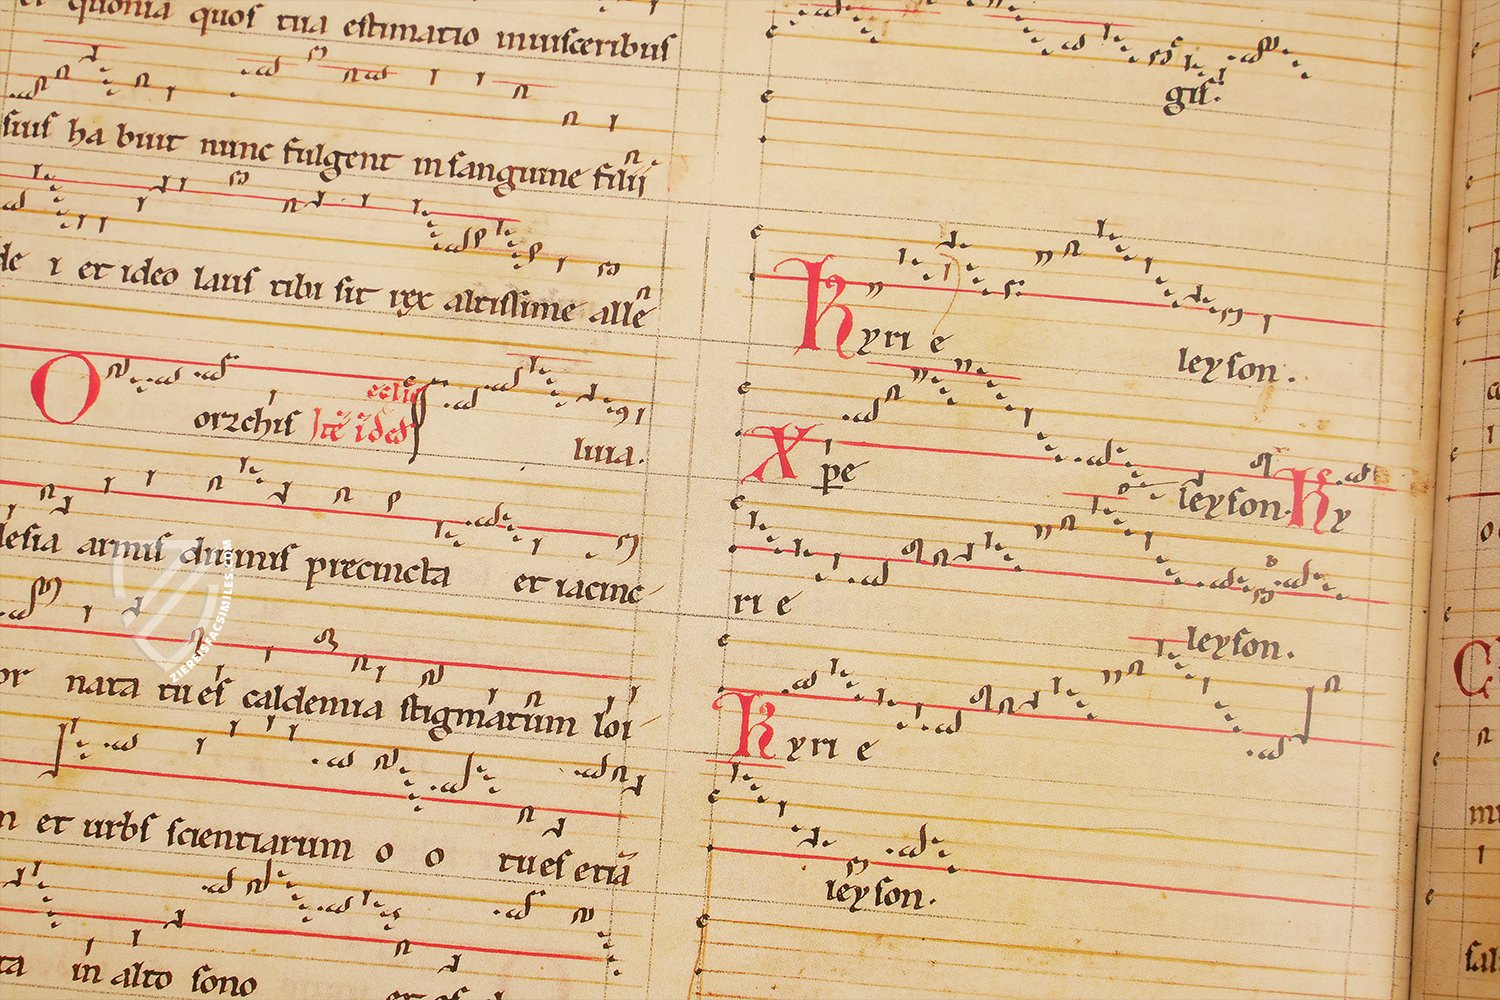 et quonia quos tua estimatio inuisceribus
suis ha buit nunc fulgent in sanguine filii
de i et ideo laus tibi sit rex altissime alle
luia.
O orzchis
eccliä
lesia armis diuinis precincta et iacinc
or nata tu es caldemia stigmatum loi
m et urbs scientiarum o o tu es etiā
ta in alto sono et es
gis.
Kyri e leyson.
Xpe leyson. Ky
ri e leyson.
Kyri e
leyson.
ZIEREISFACSIMILES.COM